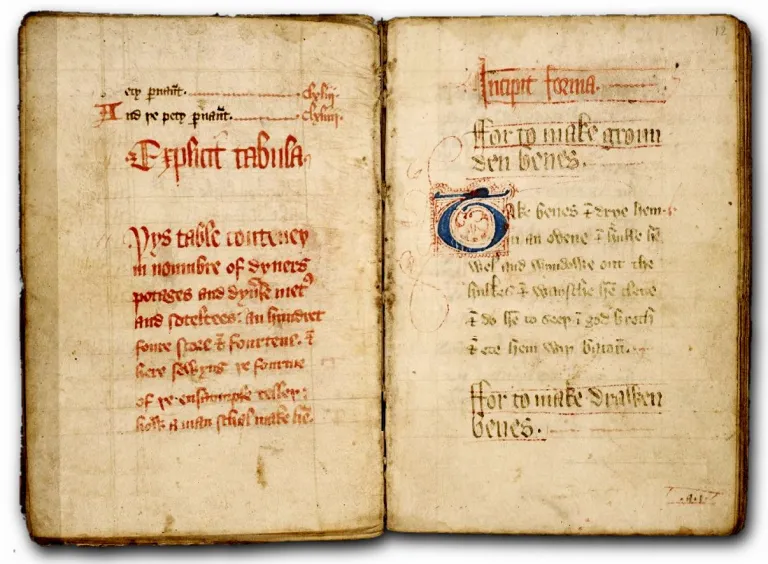 ery pnaūt. clxiiij.
And ye pety pnaūt. clxiiiij.
Explicit tabula
Þys table conteney
in noumbre of dyuers
potages and dyuͤse metꝭ
and soteltees. an hundret
foure score & fourtene. &
here sewyng ye fourme
of ye ensaumple telley:
how a man schul make hē.
12
Incipit forma.
ffor to make groun
den benes.
Take benes & drye hem
in an ovene & hulle hē
wel and wyndowe out the
hulkes & waysche hē clene
& do hē to seey ī god broth
& ete hem wiy bacoū.
ffor to make drawen
benes.
.a.j.